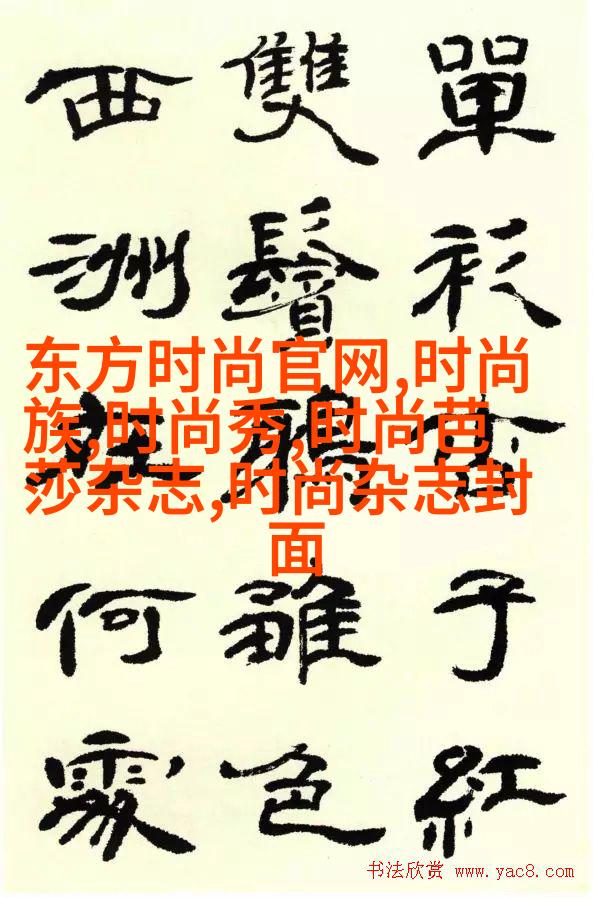 單衫杏子紅
雙鬢鴉雛色
西洲在何處
东方时尚官网,时尚
族,时尚秀,时尚芭
莎杂志,时尚杂志封
面
书法欣赏 www.yac8.com